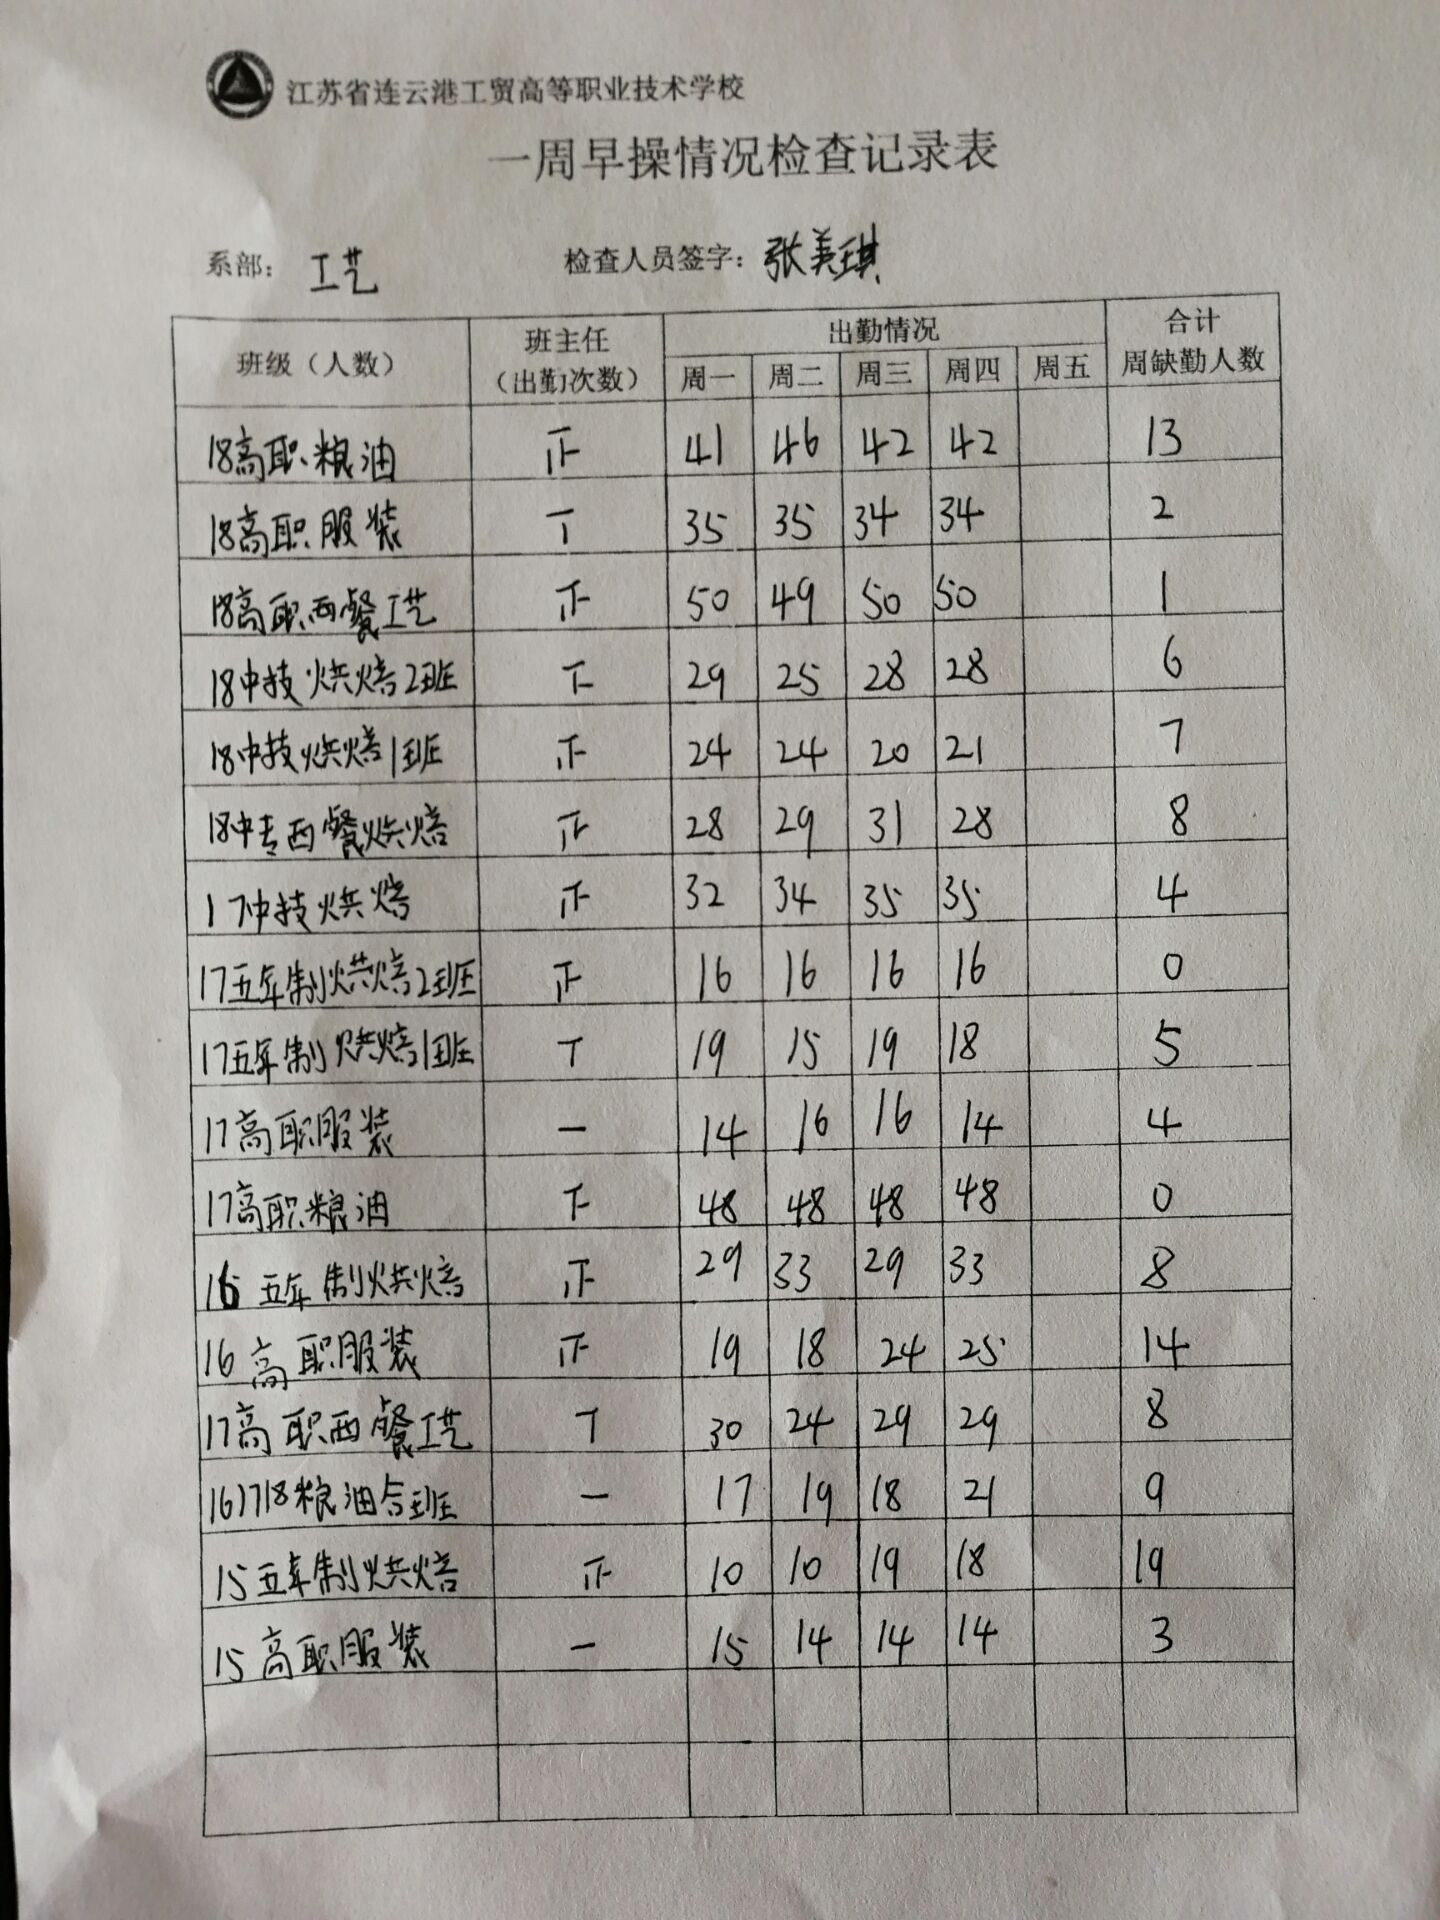 江苏省连云港工贸高等职业技术学校
一周早操情况检查记录表
系部： 工艺 检查人员签字：张美琪
班级（人数） 班主任（出勤次数） 出勤情况 合计周缺勤人数
周一 周二 周三 周四 周五
18高职粮油 正 41 46 42 42 13
18高职服装 丅 35 35 34 34 2
18高职西餐工艺 正 50 49 50 50 1
18中技烘焙2班 下 29 25 28 28 6
18中技烘焙1班 正 24 24 20 21 7
18中专西餐烘焙 正 28 29 31 28 8
17中技烘焙 正 32 34 35 35 4
17五年制烘焙2班 正 16 16 16 16 0
17五年制烘焙1班 丅 19 15 19 18 5
17高职服装 一 14 16 16 14 4
17高职粮油 下 48 48 48 48 0
16五年制烘焙 正 29 33 29 33 8
16高职服装 正 19 18 24 25 14
17高职西餐工艺 丅 30 24 29 29 8
161718粮油合班 一 17 19 18 21 9
15五年制烘焙 正 10 10 19 18 19
15高职服装 一 15 14 14 14 3